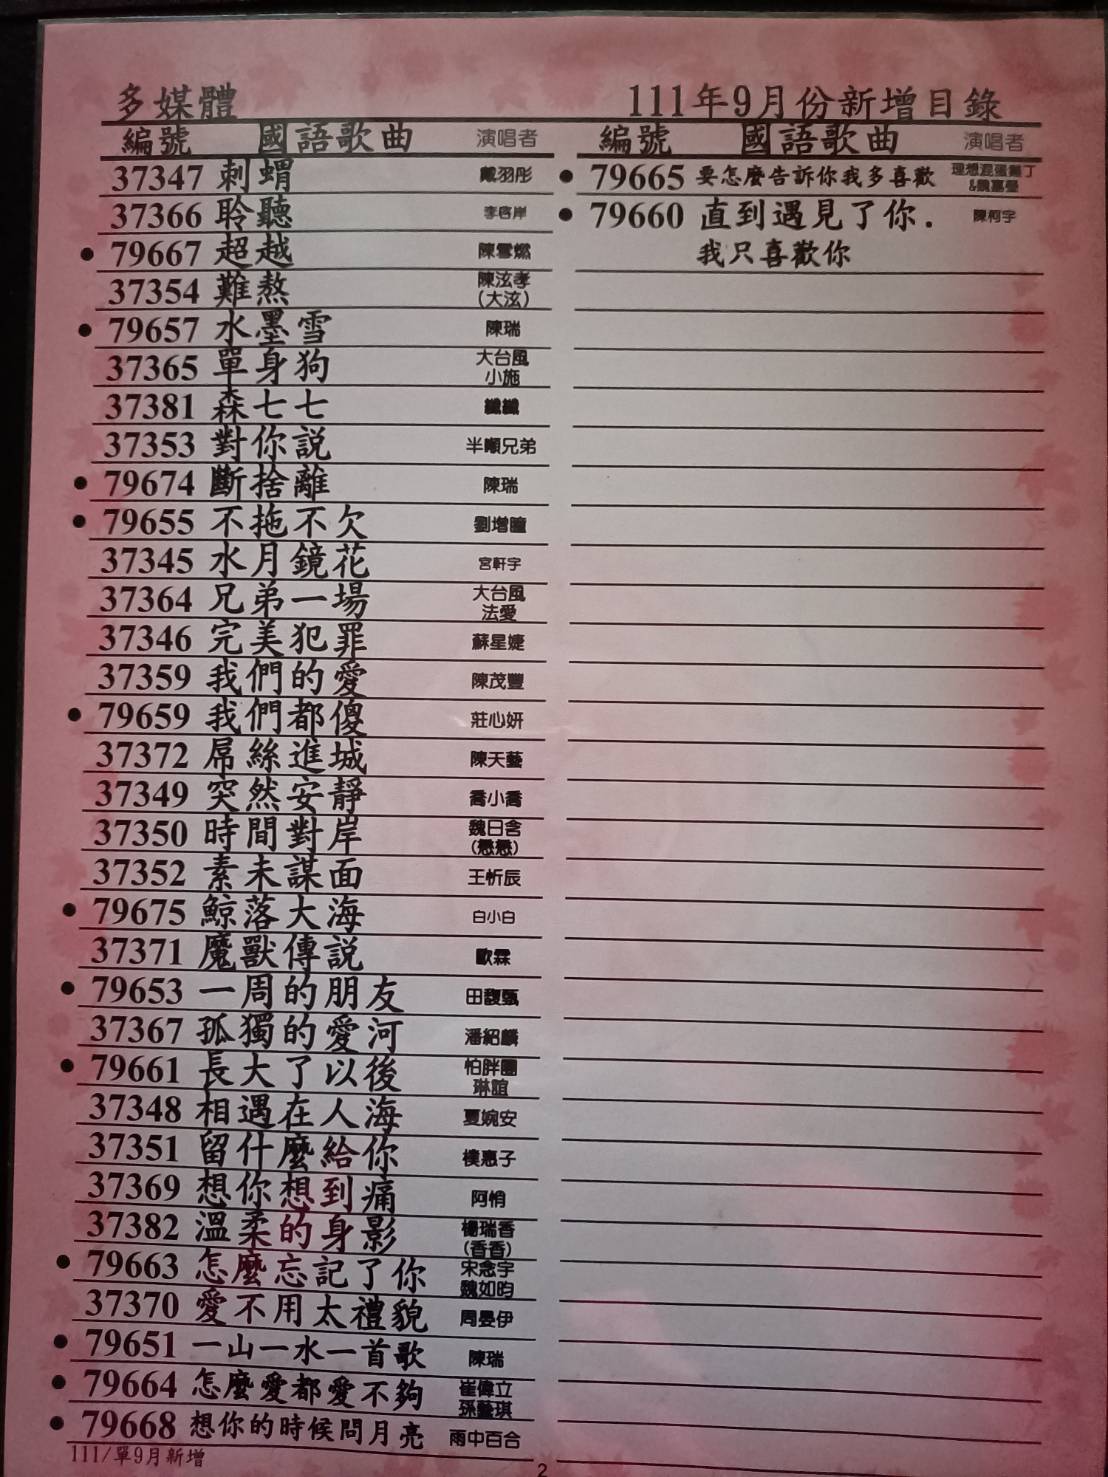 多媒體
111年9月份新增目錄
編號 國語歌曲 演唱者
37347 刺蝟 戴羽彤
37366 聆聽 李啓岸
● 79667 超越 陳雪燃
37354 難熬 陳泫孝
(大泫)
● 79657 水墨雪 陳瑞
37365 單身狗 大台風
小施
37381 森七七 纖纖
37353 對你説 半噸兄弟
● 79674 斷捨離 陳瑞
● 79655 不拖不欠 劉增瞳
37345 水月鏡花 宮軒宇
37364 兄弟一場 大台風
法愛
37346 完美犯罪 蘇星婕
37359 我們的愛 陳茂豐
● 79659 我們都傻 莊心妍
37372 屌絲進城 陳天藝
37349 突然安靜 喬小喬
37350 時間對岸 魏日含
(懋懋)
37352 素未謀面 王忻辰
● 79675 鯨落大海 白小白
37371 魔獸傳説 歐霖
● 79653 一周的朋友 田馥甄
37367 孤獨的愛河 潘紹麟
● 79661 長大了以後 怕胖團
琳誼
37348 相遇在人海 夏婉安
37351 留什麼給你 樸惠子
37369 想你想到痛 阿悄
37382 溫柔的身影 楊瑞香
(香香)
● 79663 怎麼忘記了你 宋念宇
魏如昀
37370 愛不用太禮貌 周晏伊
● 79651 一山一水一首歌 陳瑞
● 79664 怎麼愛都愛不夠 崔偉立
孫藝琪
● 79668 想你的時候問月亮 雨中百合
編號 國語歌曲 演唱者
● 79665 要怎麼告訴你我多喜歡 理想混蛋雞丁
&魏嘉瑩
● 79660 直到遇見了你. 陳柯宇
我只喜歡你
111/單9月新增
2